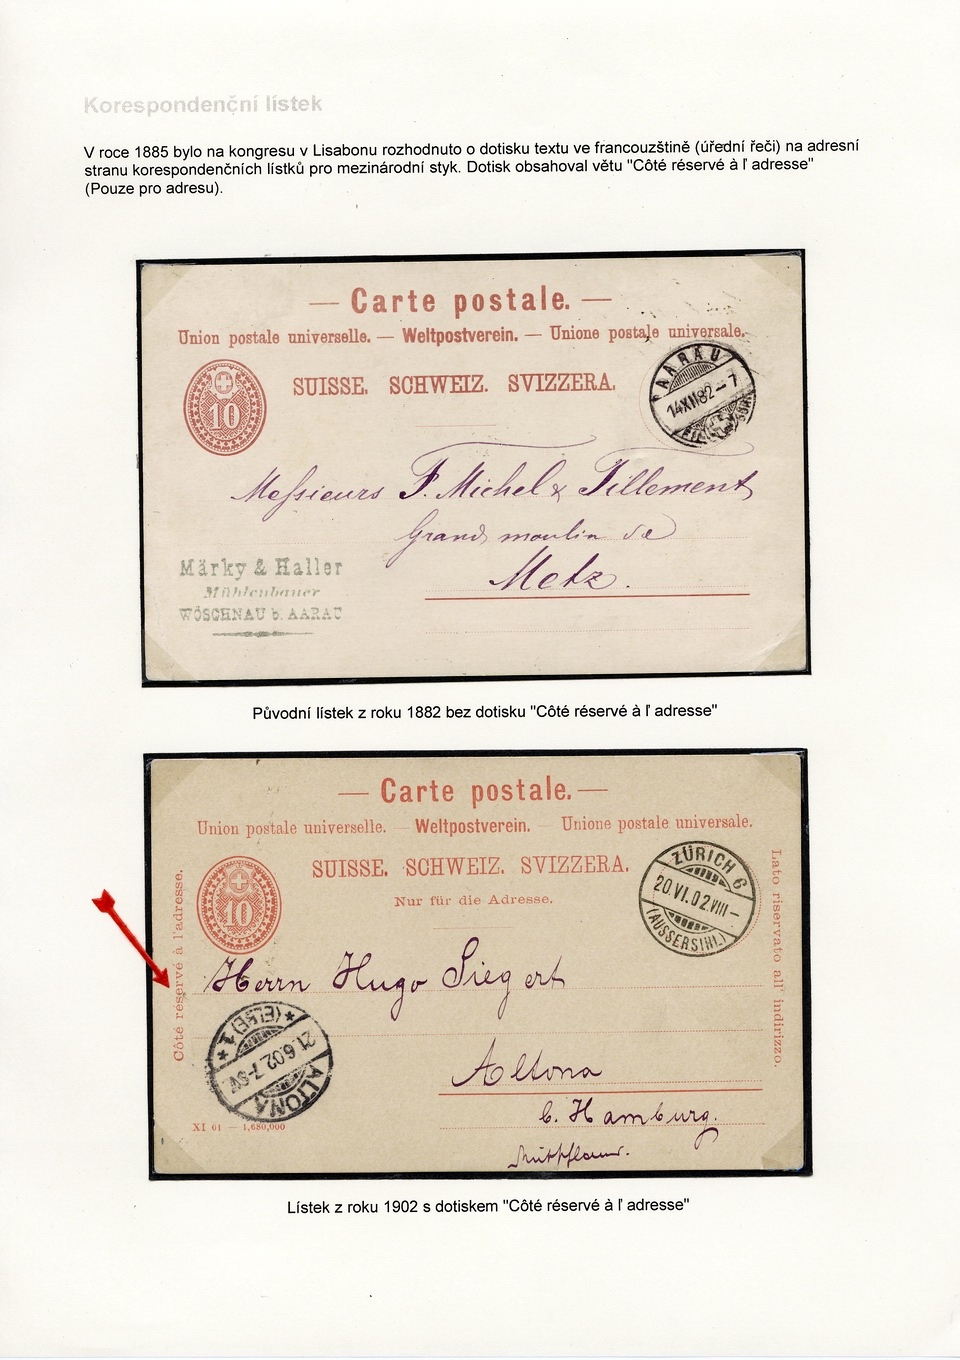 Korespondenční lístek
V roce 1885 bylo na kongresu v Lisabonu rozhodnuto o dotisku textu ve francouzštině (úřední řeči) na adresní
stranu korespondenčních lístků pro mezinárodní styk. Dotisk obsahoval větu "Côté réservé à l' adresse"
(Pouze pro adresu).
— Carte postale. —
Union postale universelle. — Weltpostverein. — Unione postale universale.
10
SUISSE. SCHWEIZ. SVIZZERA.
AARAU
14 XII 82 – 7
Messieurs F. Michel & Tillement
Grand moulin de
Metz.
Märky & Haller
Mühlenbauer
WÖSCHNAU b. AARAU
Původní lístek z roku 1882 bez dotisku "Côté réservé à l' adresse"
— Carte postale. —
Union postale universelle. Weltpostverein. Unione postale universale.
10
SUISSE. SCHWEIZ. SVIZZERA.
Nur für die Adresse.
ZÜRICH 6
20.VI.02.VIII–
(AUSSERSIHL)
Côté réservé à l'adresse.
Lato riservato all' indirizzo.
Herrn Hugo Siegert
ALTONA
21.6.02.7-8V
* (ELBE) 1 *
Altona
b. Hamburg.
XI 01 — 1,680,000
Lístek z roku 1902 s dotiskem "Côté réservé à l' adresse"